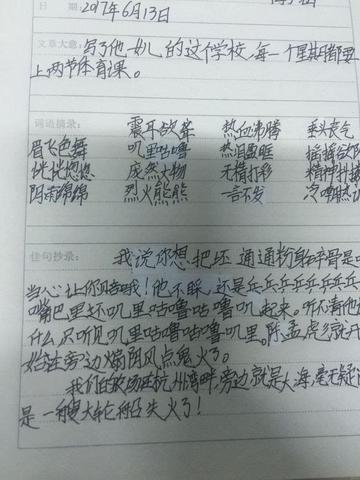 日 期:2017年6月13日
文章大意:写了他女儿的这个学校,每一个星期都要
上两节体育课。
词语摘录: 震耳欲聋 热血沸腾 垂头丧气
眉飞色舞 叽里咕噜 热泪盈眶 摇摇欲
恍恍悠悠 庞然大物 无精打彩 精神抖擞
阴雨绵绵 烈火熊熊 一言不发 冷嘲热
佳句抄录: 我说你想把坯 通通粉身碎骨是
当心让你见鬼哦!他不睬,还是乒乒乒乒乒乒乒
嘴巴里还叽里咕噜咕噜叽起来。听不清他
什么,只听见叽里咕噜咕噜叽里。陈孟虎就开
始在旁边煽阴风点鬼火了。
我们的农场在杭州湾畔,旁边就是大海,毫无疑
是一艘大轮船失火了!